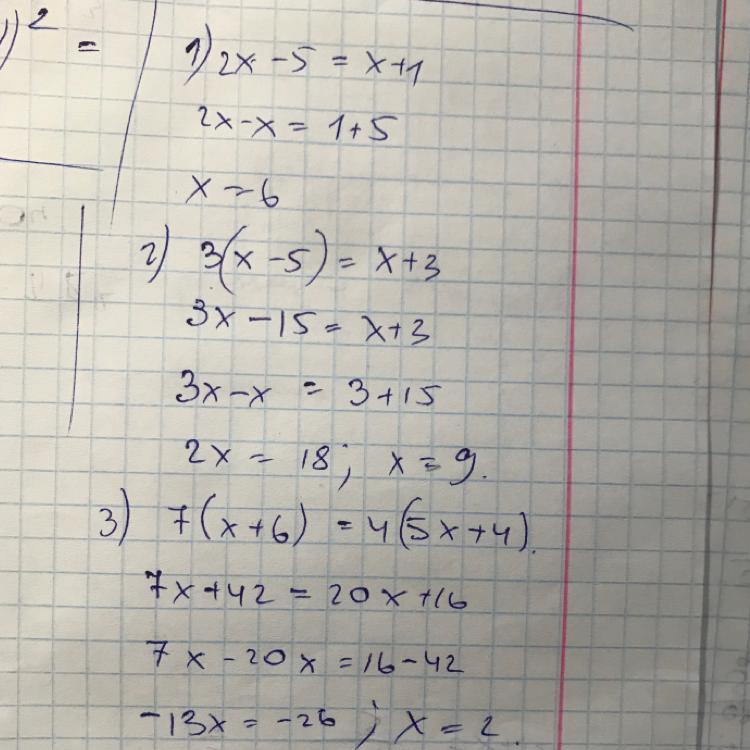 )² =
1) 2x - 5 = x+1
2x-x = 1+5
x = 6
2) 3(x - 5) = x+3
3x - 15 = x+3
3x-x = 3+15
2x = 18; x = 9.
3) 7(x+6) = 4(5x+4).
7x+42 = 20x+16
7x - 20x = 16-42
-13x = -26; x = 2.